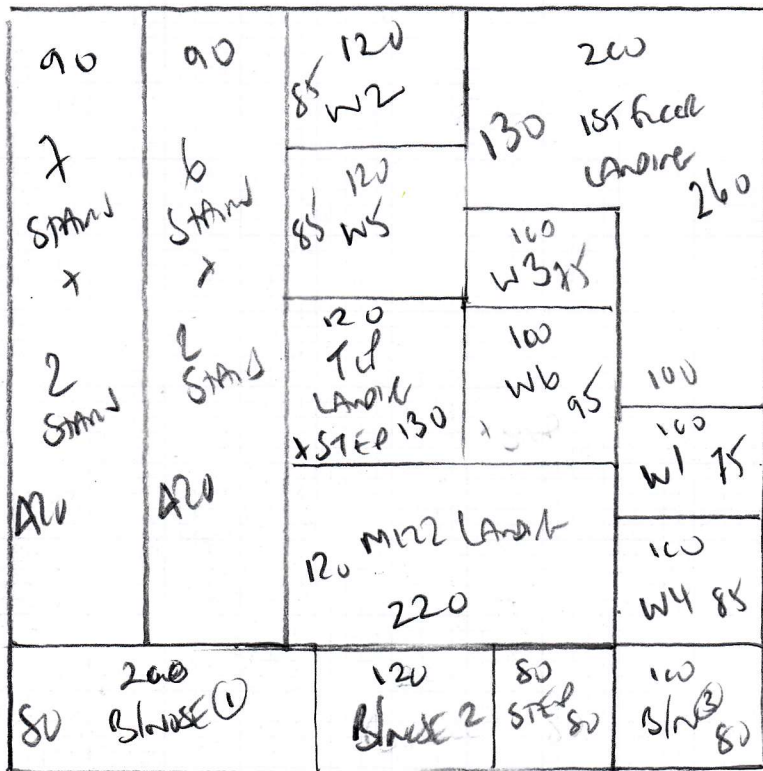 90
7
STAIRS
+
2
STAIRS
420
90
6
STAIRS
+
2
STAIRS
420
120
85 W2
120
85 W5
120
TOP
LANDING
+ STEP 130
200
130 1ST FLOOR
LANDING
260
100
100
W3 75
100
W6 95
100
W1 75
100
W4 85
120 MIZZ LANDING
220
200
80 B/NOSE ①
120
B/NOSE 2
80
STEP
80
100
B/N ③
80